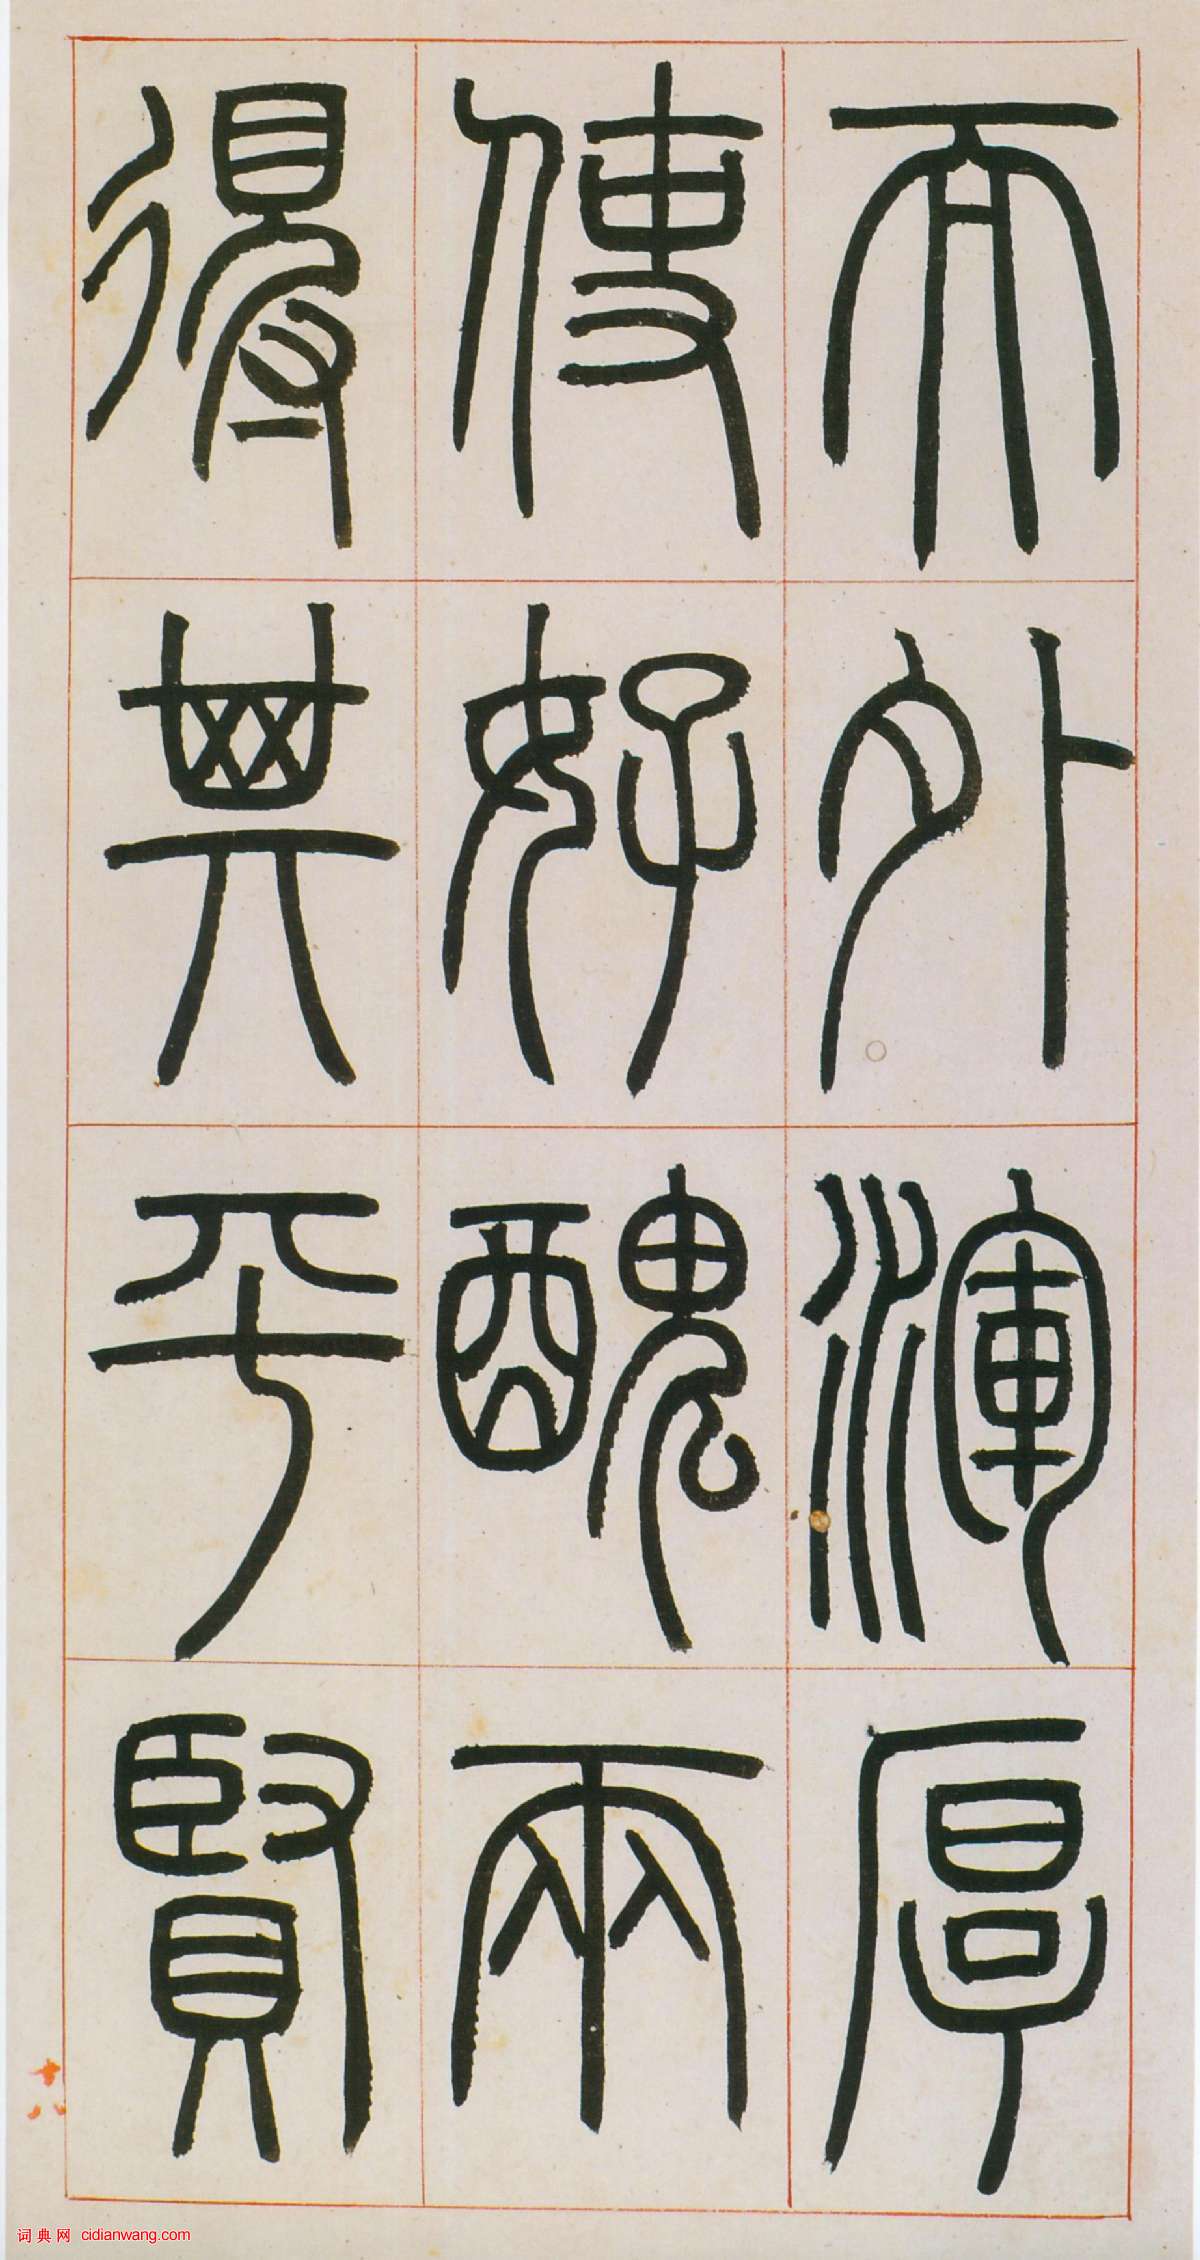 而外渾厚
使好醜兩
得其平賢
十八
词典网 cidianwang.com